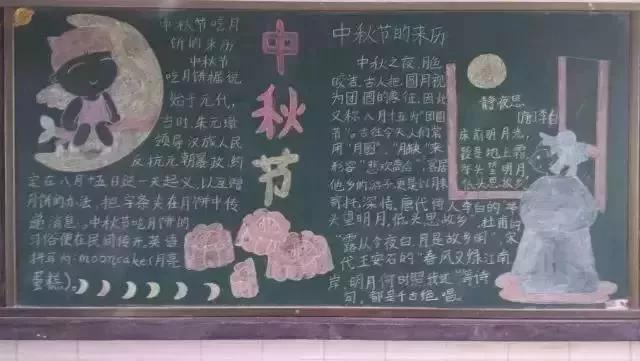 中秋节吃月
饼的来历
中秋节
吃月饼据说
始于元代,
当时,朱元璋
领导汉族人民
反抗元朝暴政,约
定在八月十五日这一天起义,以互赠
月饼的办法,把字条夹在月饼中传
递消息。中秋节吃月饼的
习俗便在民间传开,英语
拼写为mooncake(月亮
蛋糕)。
中
秋
节
中秋节的来历
中秋之夜,月色
皎洁,古人把圆月视
为团圆的象征,因此
又称八月十五为“团圆
节”。古往今天人们常
用“月圆”、“月缺”来
形容“悲欢离合”,客居
他乡的游子更是以月来
寄托深情。唐代诗人李白的“举
头望明月,低头思故乡”,杜甫的
“露从今夜白,月是故乡明”,宋
代王安石的“春风又绿江南
岸,明月何时照我还”等诗
句,都是千古绝唱。
静夜思
[唐]李白
床前明月光,
疑是地上霜,
举头望明月,
低头思故乡。